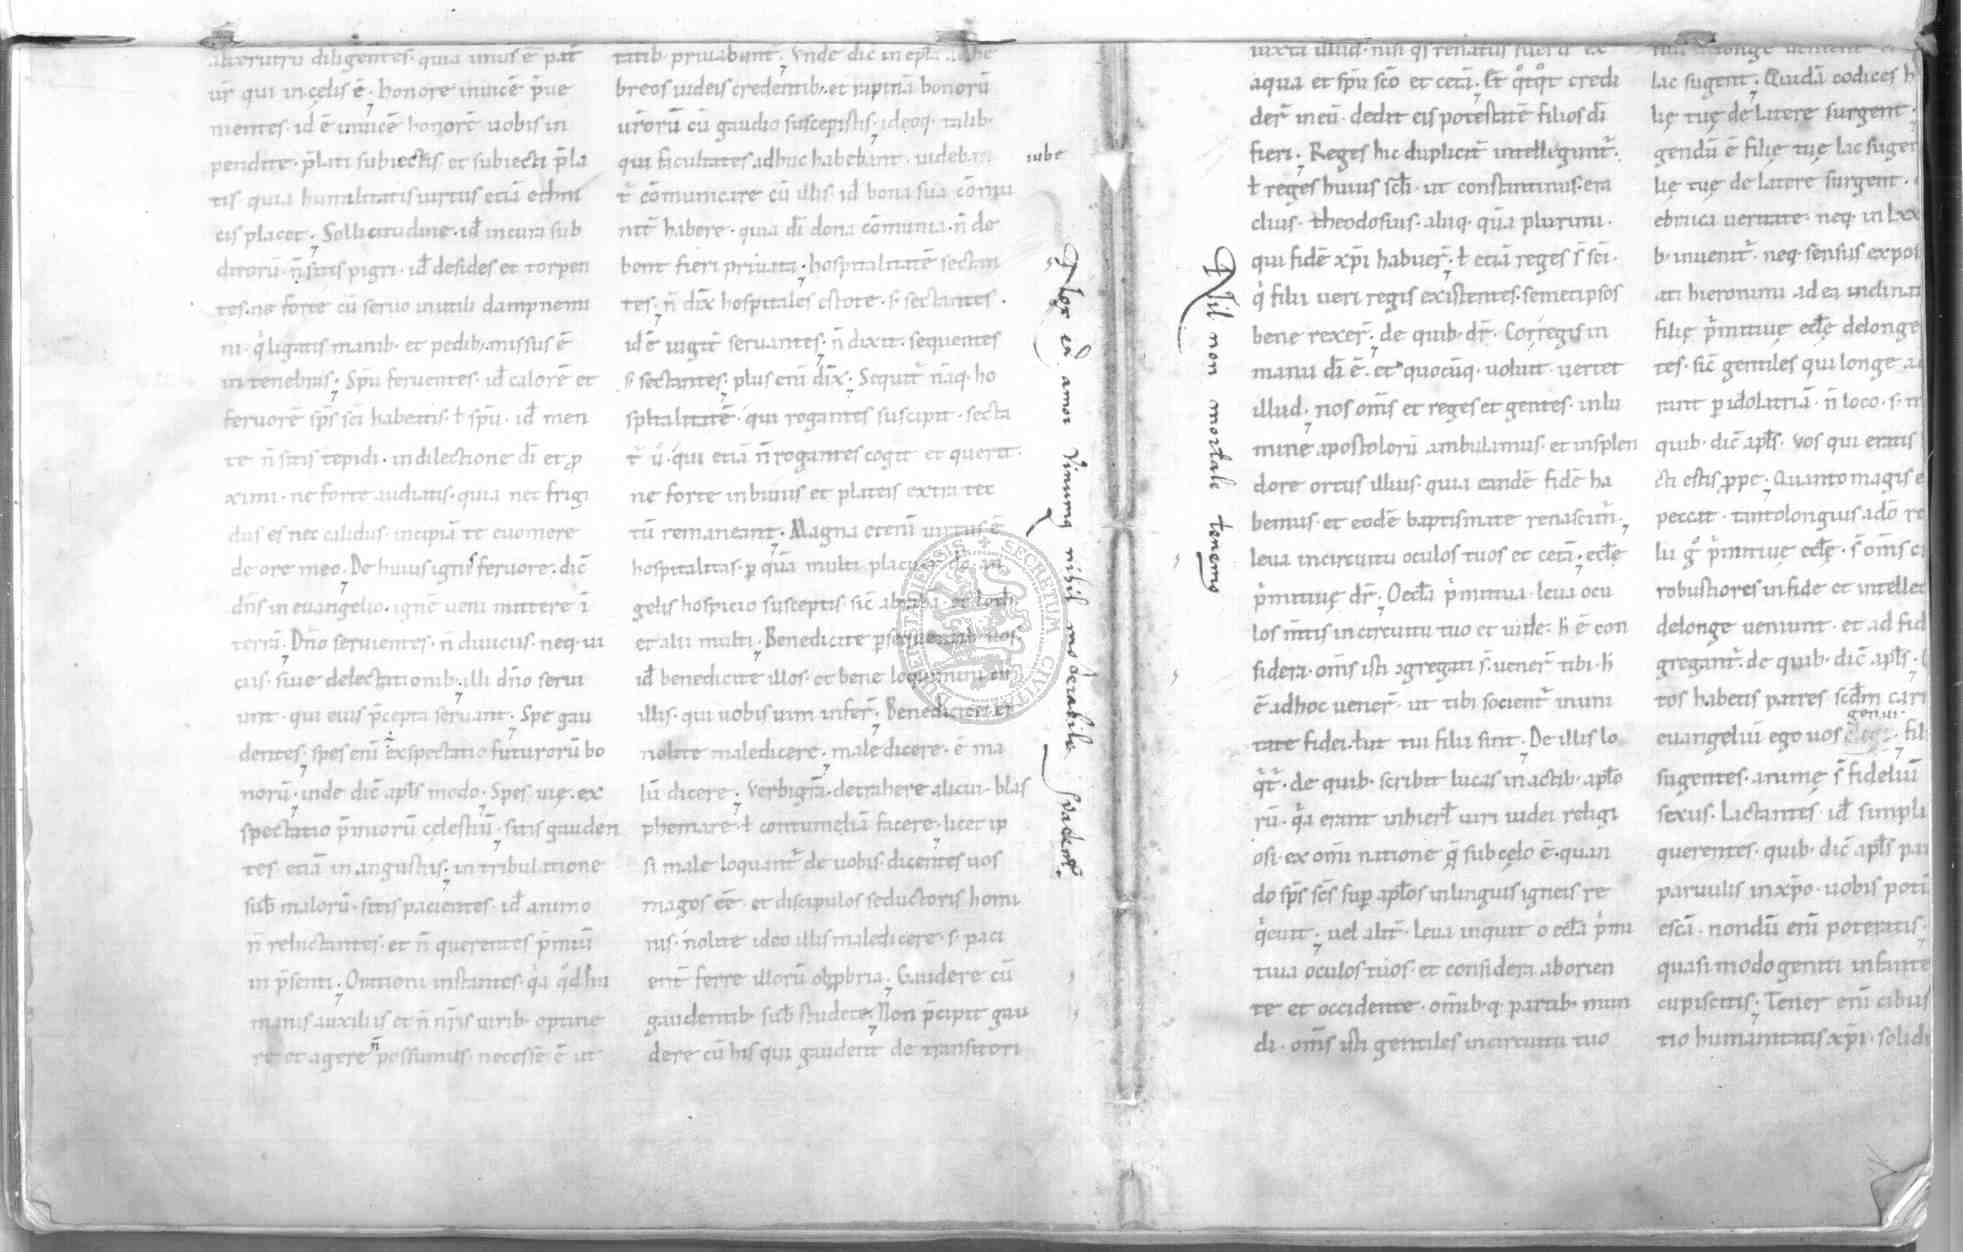 alterutrū diligentes · quia unus ē pat̄
ur̄ qui in cęlis ē · honore inuicē p̄ue
nientes · id ē inuicē honorē uobis in
pendite · p̄lati subiectis et subiecti p̄la
tis quia humilitatis uirtus etiā
cis placet · Sollicitudine · id in cura sub
ditorū · n̄ sitis pigri · id desides et torpen
tes · ne forte cū seruo inutili dampnemi
ni · q̇ ligatis manib · et pedib · missus ē
in tenebras · Spu feruentes · id calorē et
feruorē sp̄s sci habeatis · ł spū · id men
te n̄ sitis tepidi · in dilectione dī et p
ximi · ne forte audiatis · quia nec frigi
dus es nec calidus · incipiā te euomere
de ore meo · De huius ignis feruore · dic̄
dn̄s in euangelio · ignē ueni mittere ī
terrā · Dn̄o seruientes · n̄ diuicus · neq · ui
ciis · siue delectationib · illi dn̄o serui
unt · qui eius p̄cepta seruant · Spe gau
dentes · spes eni exspectatio futurorū bo
norū · unde dic̄ apl̄s modo · Spes uię · ex
spectatio p̄miorū cęlestiū · sitis gauden
tes etiā in angustiis · in tribulatione
sub malorū · sitis pacientes · id animo
n̄ reluctantes · et n̄ querentes p̄miū
in p̄senti · Orationi instantes · q̇a q̊d hu
manis auxiliis et n̄ nr̄is uirib · optine
re et agere n̄ possumus · necesse ē ut
tatib · priuabant · Vnde dic̄ in epl̄a
breos iudeis credentib · et rapinā bonorū
ur̄orū cū gaudio suscepistis · ideoq · talib ·
qui facultates adhuc habebant · uideban
t̄ cōmunicare cū illis · id bona sua cōmu
nit̄ habere · quia dī dona cōmunia · n̄ de
bent fieri priuata · hospitalitatē sectan
tes · n̄ dix̄ hospitales estote · s̄ sectantes ·
id ē iugit̄ seruantes · n̄ dixit · sequentes
s̄ sectantes · plus eni dix̄ · Sequit̄ nāq · ho
spitalitatē · qui rogantes suscipit · secta
t̄ ů · qui etiā n̄ rogantes cogit et querit ·
ne forte in biuiis et plateis extra tec
tū remaneant · Magna eteni uirtus ē
hospitalitas · p quā multi placuer̄ dō · an
gelis hospicio susceptis · sic̄ abraha · et loth
et alii multi · Benedicite psequentib uos ·
id benedicite illos · et bene loquimini cū
illis · qui uobis uim infer̄ · Benedicite et
nolite maledicere · maledicere · ē ma
lū dicere · Verbigrā · detrahere alicui · blas
phemare · ł contumeliā facere · licet ip
si male loquant̄ de uobis · dicentes uos
magos eē · et discipulos seductoris homi
nis · nolite ideo illis maledicere · s · paci
ent̄ ferre illorū obpbria · Gaudere cū
gaudentib · sub studete · Non p̄cipit gau
dere cū his qui gaudent de transitori
iube
Flos en̄ amor Vinumq nihil moderabile suadent
Nil non mortale tenemo
iuxta illud · nisi q̇s renatus fuerit ex
aqua et spū scō et cetā · Et q̊tq̊t credi
der̄ in eū · dedit eis potestatē filios dī
fieri · Reges hic duplicit̄ intellegunt̄ ·
ł reges huius scl̄i · ut constantinus · era
clius · theodosius · aliiq · quā plurimi ·
qui fidē xp̄i habuer̄ · ł etiā reges s̄ sci ·
q̇ filii ueri regis existentes · semetipsos
bene rexer̄ · de quib · dr̄ · Cor regis in
manu dī ē · et quocūq · uoluit · uertet
illud · nos om̄s et reges et gentes · in lu
mine apostolorū ambulamus · et in splen
dore ortus illius · quia eandē fidē ha
bemus · et eodē baptismate renascim̄ ·
leua in circuitu oculos tuos et cetā · eccl̄ę
p̄mitiuę dr̄ · O eccl̄a p̄mitiua · leua ocu
los m̄tis in circuitu tuo et uide · h̄ ē con
sidera · om̄s isti ɔgregati s̄ · uener̄ tibi · h̄
ē adhoc uener̄ · ut tibi socient̄ in uni
tate fidei · ł ut tui filii sint · De illis lo
q̇t̄ · de quib · scribit lucas in actib · aplo
rū · q̇a erant in hierl̄ uiri iudei religi
osi · ex om̄i natione quę sub cęlo ē · quan
do sp̄s sc̄s sup apl̄os in linguis igneis re
q̇euit · uel alit̄ · leua inquit o eccl̄a p̄mi
tiua oculos tuos · et considera ab orien
te et occidente · om̄ib · q · partib · mun
di · om̄s isti gentiles in circuitu tuo
lac sugent · Quidā codices h
lię tuę de latere surgent ·
gendū ē filię tuę lac suge
lię tuę de latere surgent ·
ebraica ueritate · neq · in lxx
b · inuenit̄ · neq · sensus expo
ati hieronimi ad ea
filię p̄mitiuę eccl̄ę de longe
tes · sic̄ gentiles qui longe
runt p idolatriā · n̄ loco · s ·
quib · dic̄ apl̄s · Vos qui eratis
cti estis ppe · Quanto magis
peccit · tanto longius · a dō re
lii g̊ p̄mitiuę eccl̄ę · s̄ om̄s
robustiores in fide et intellec
de longe ueniunt · et ad fid
gregant̄ · de quib · dic̄ apl̄s ·
tos habetis patres scdm cari
genui
euangeliū ego uos · fil
sugentes · animę s̄ fideliū
sexus · Lactantes · id simpli
querentes · quib · dic̄ apl̄s
paruulis in xp̄o · uobis poti
escā · nondū eni poteratis ·
quasi modo geniti infante
cupiscitis · Tener eni cibus
tio humanitatis xp̄i · solidi
SECRETUM CIVITATIS